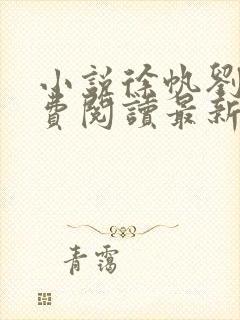 小説徐帆劉
費閱讀最新
青靄